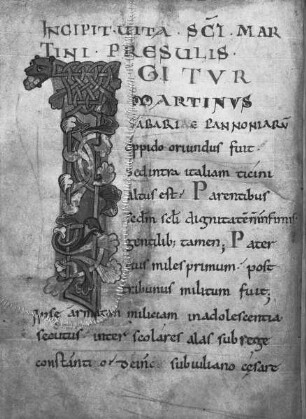 INCIPIT · VITA · SCĪ · MAR
TINI · PRESULIS ·
IGITUR
MARTINUS
SABARIAE PANNONIARŪ
oppido oriundus fuit.
sed intra italiam ticini
altus est. Parentibus
secdm scl̄i dignitatē nō infimis
gentilib; tamen, Pater
eius miles primum post
tribunus militum fuit,
Ipse armatam miliciam in adolescentia
secutus inter scolares alas sub rege
constanti o deinc̄ sub iuliano cesare